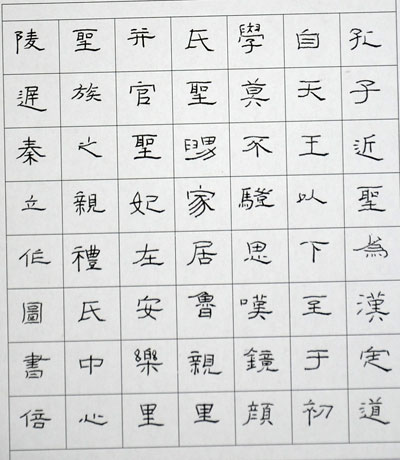 孔子近聖為漢定道
自天王以下至于初
學莫不思嘆鏡顔
氏聖舅家居魯親里
并官聖妃在安樂里
聖族之親禮氏中心
陵遲秦立作圖書倍